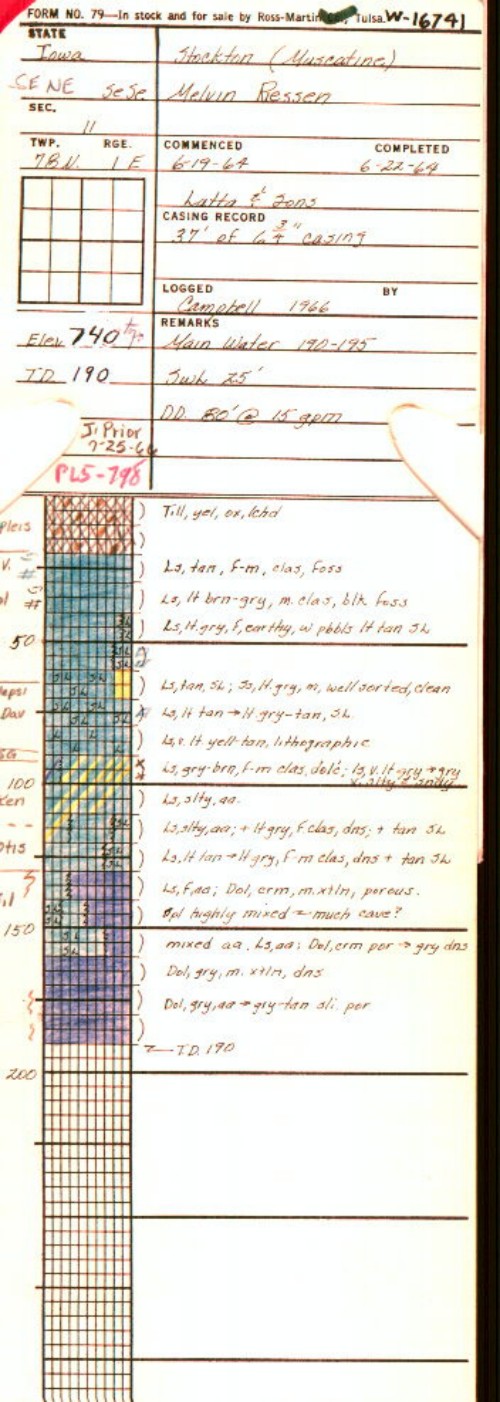 FORM NO. 79—In stock and for sale by Ross-Martin Co., Tulsa. W-16741
STATE
Iowa Stockton (Muscatine)
SE NE SeSe. Melvin Riessen
SEC.
11
TWP. RGE. COMMENCED COMPLETED
78 N. 1 E 6-19-64 6-22-64
Latta & Sons
CASING RECORD
37' of 6 3/4" casing
LOGGED BY
Campbell 1966
REMARKS
Elev 740 Main Water 190-195
T.D. 190 Swl 25'
DD. 80' @ 15 gpm
J. Prior
7-25-66
PLS-798
Pleis Till, yel, ox, lchd
Ls, tan, f-m, clas, foss
Ls, lt brn-gry, m. clas, blk foss
Ls, lt.gry, f, earthy, w pbbls lt tan Sh
50
Ls, tan, Sh; Ss, lt.gry, m, well sorted, clean
Dav Ls, lt tan → lt.gry-tan, Sh.
Ls, v. lt yell-tan, lithographic
Ls, gry-brn, f-m clas, dolc; ls, v. lt gry → gry
v. silty & sndy
100
Ls, slty, aa.
Ls, slty, aa; + lt gry, f. clas, dns; + tan Sh
Otis Ls, lt tan → lt gry, f-m clas, dns + tan Sh
Ls, f, aa; Dol, crm, m. xtln, porous.
Spl highly mixed - much cave?
150
mixed aa, Ls, aa; Dol, crm por → gry dns
Dol, gry, m. xtln, dns
Dol, gry, aa → gry-tan sli. por
T.D. 190
200